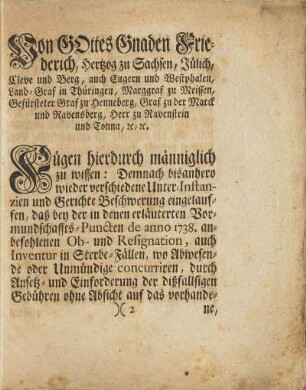 Von GOttes Gnaden Frie-
derich, Hertzog zu Sachsen, Jülich,
Cleve und Berg, auch Engern und Westphalen,
Land-Graf in Thüringen, Marggraf zu Meissen,
Gefürsteter Graf zu Henneberg, Graf zu der Marck
und Ravensberg, Herr zu Ravenstein
und Tonna, ꝛc. ꝛc.
Fügen hierdurch männiglich
zu wissen: Demnach bisanhero
wieder verschiedene Unter Instan-
zien und Gerichte Beschwerung eingelauf-
fen, daß bey der in denen erläuterten Vor-
mundschaffts-Puncten de anno 1738. an-
befohlenen Ob- und Resignation, auch
Inventur in Sterbe-Fällen, wo Abwesen-
de oder Unmündige concurriren, durch
Ansetz- und Einforderung der dißfallsigen
Gebühren ohne Absicht auf das vorhande-
)( 2 ne,